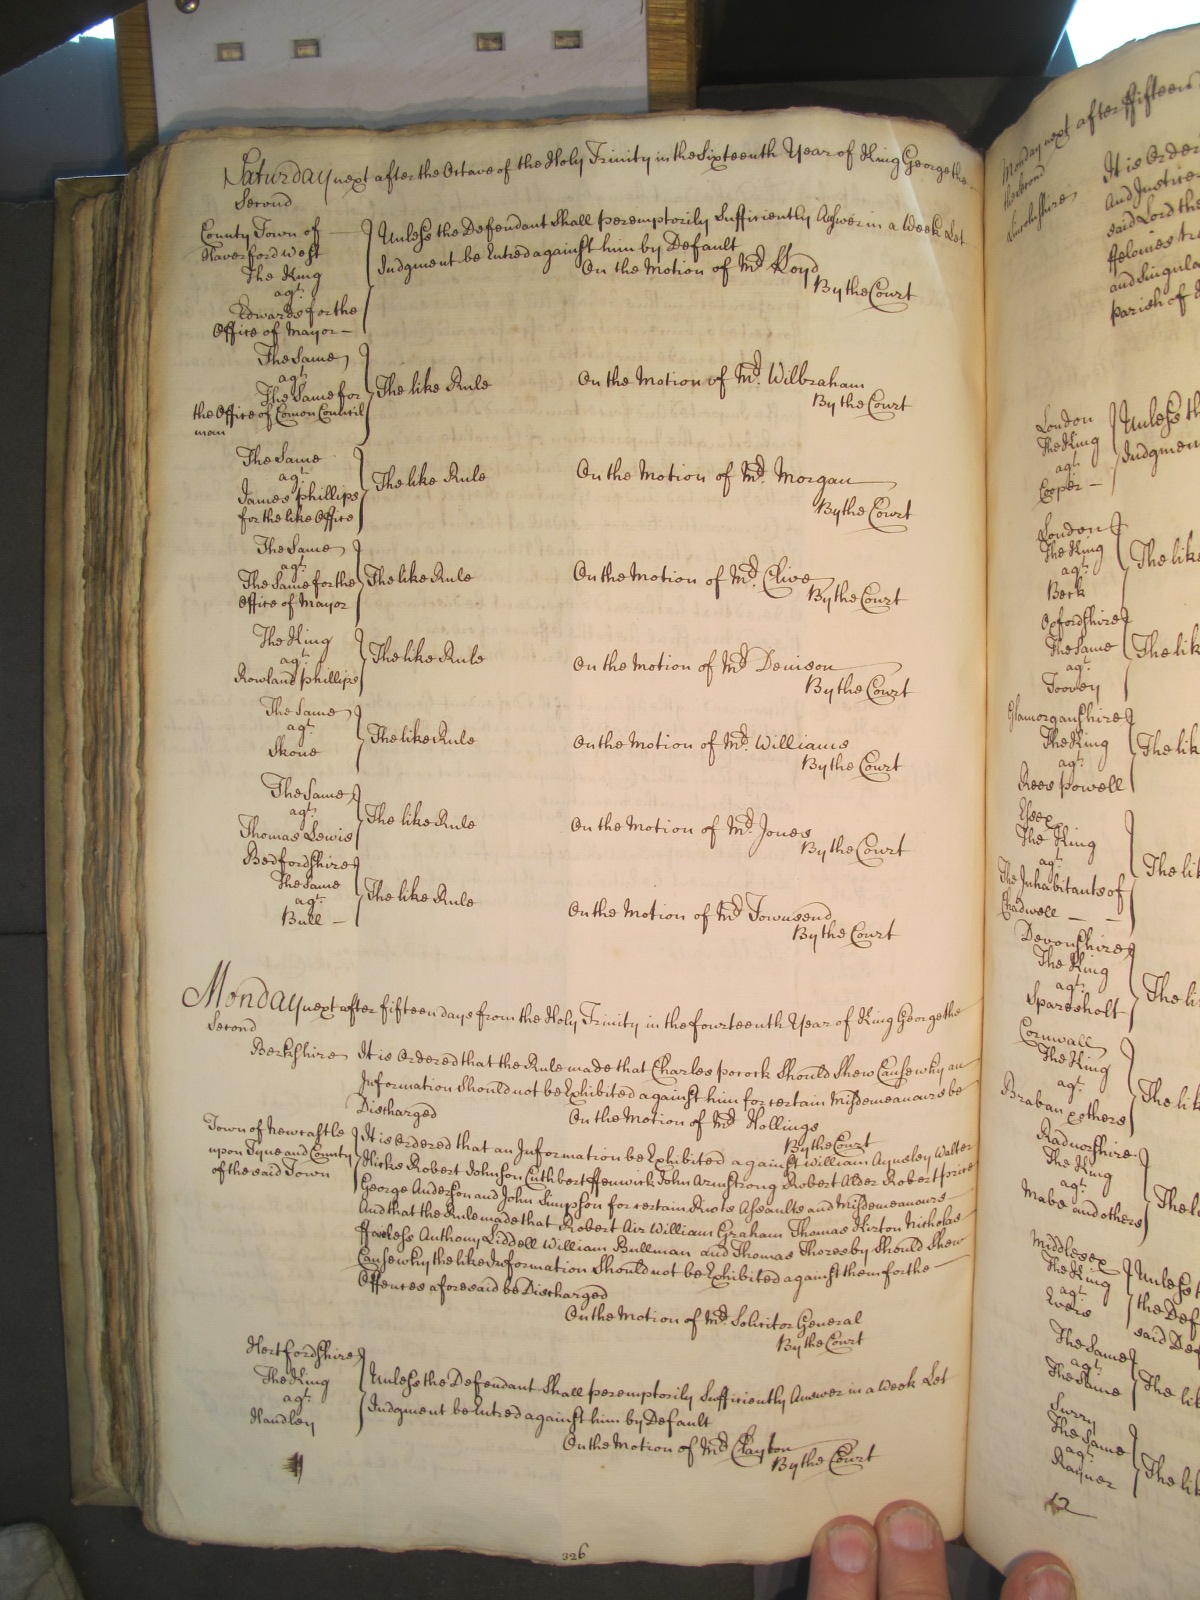 Saturday next after the Octave of the Holy Trinity in the Sixteenth Year of King George the
Second
County Town of
Haverford west
The King
agt.
Edwards for the
Office of Mayor
Unless the Defendant Shall peremptorily Sufficiently Answer in a Week Let
Judgment be Entred against him by Default
On the Motion of Mr. Lloyd
By the Court
The Same
agt.
The Same for
the Office of Comon Council
man
The like Rule
On the Motion of Mr. Wilbraham
By the Court
The Same
agt.
James Phillips
for the like Office
The like Rule
On the Motion of Mr. Morgan
By the Court
The Same
agt.
The Same for the
Office of Mayor
The like Rule
On the Motion of Mr. Clive
By the Court
The King
agt.
Rowland Phillips
The like Rule
On the Motion of Mr. Denison
By the Court
The Same
agt.
Skone
The like Rule
On the Motion of Mr. Williams
By the Court
The Same
agt.
Thomas Lewis
The like Rule
On the Motion of Mr. Jones
By the Court
Bedfordshire
The Same
agt.
Bull
The like Rule
On the Motion of Mr. Townsend
By the Court
Monday next after fifteen days from the Holy Trinity in the fourteenth Year of King George the
Second
Berkshire
It is Ordered that the Rule made that Charles pocock Should Shew Cause why an
Information Should not be Exhibited against him for certain Misdemeanours be
Discharged
On the Motion of Mr. Hollings
By the Court
Town of Newcastle
upon Tyne and County
of the said Town
It is Ordered that an Information be Exhibited against William Aynsley Walter
Hicks Robert Johnson Cuthbert ffenwick John Armstrong Robert Alder Robert price
George Anderson and John Simpson for certain Riots Assaults and Misdemeanours
And that the Rule made that Robert Air William Graham Thomas Kirton Nicholas
Anthony Liddell William Bullman and Thomas Thoresby Should Shew
Cause why the like Information Should not be Exhibited against them for the
Offences aforesaid be Discharged
On the Motion of Mr. Solicitor General
By the Court
Hertfordshire
The King
agt.
Handley
Unless the Defendant Shall peremptorily Sufficiently Answer in a Week Let
Judgment be Entred against him by Default
On the Motion of Mr. Clayton
By the Court
326
Monday next after fifteen
the Second
Lincolnshire
It is Order
And Justice
said Lord the
ffelonies tr
and Singula
parish of
London
The King
agt.
Cooper
Unless th
Judgmen
London
The King
agt.
Beck
The like
Oxfordshire
The Same
agt.
Toovey
The lik
Glamorganshire
The King
agt.
Rees powell
The lik
Essex
The King
agt.
The Inhabitants of
Chadwell
The lik
Devonshire
The King
agt.
Sparesholt
The li
Cornwall
The King
agt.
Braban & others
The lik
Radnorshire
The King
agt.
Mabe and others
The l
Middlesex
The King
agt.
Evers
Unless t
the Def
said De
The Same
agt.
The Same
The lik
Surry
The Same
agt.
Rayner
The lik
12